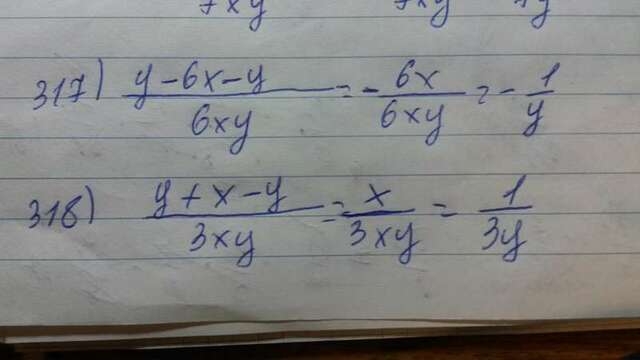 7xy 7xy 7y
317) (y-6x-y)/(6xy) = -(6x)/(6xy) = -1/y
318) (y+x-y)/(3xy) = x/(3xy) = 1/(3y)